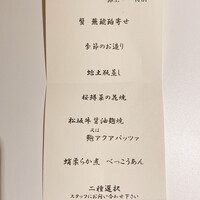 蟹 蕪 砧 寄せ
季節のお造り
蛤土瓶蒸し
桜鱒菜の花焼
松阪牛醤油麹焼
又は
鮑アクアパッツァ
蛸柔らか煮 べっこうあん
二種選択
スタッフにお問い合わせ下さい